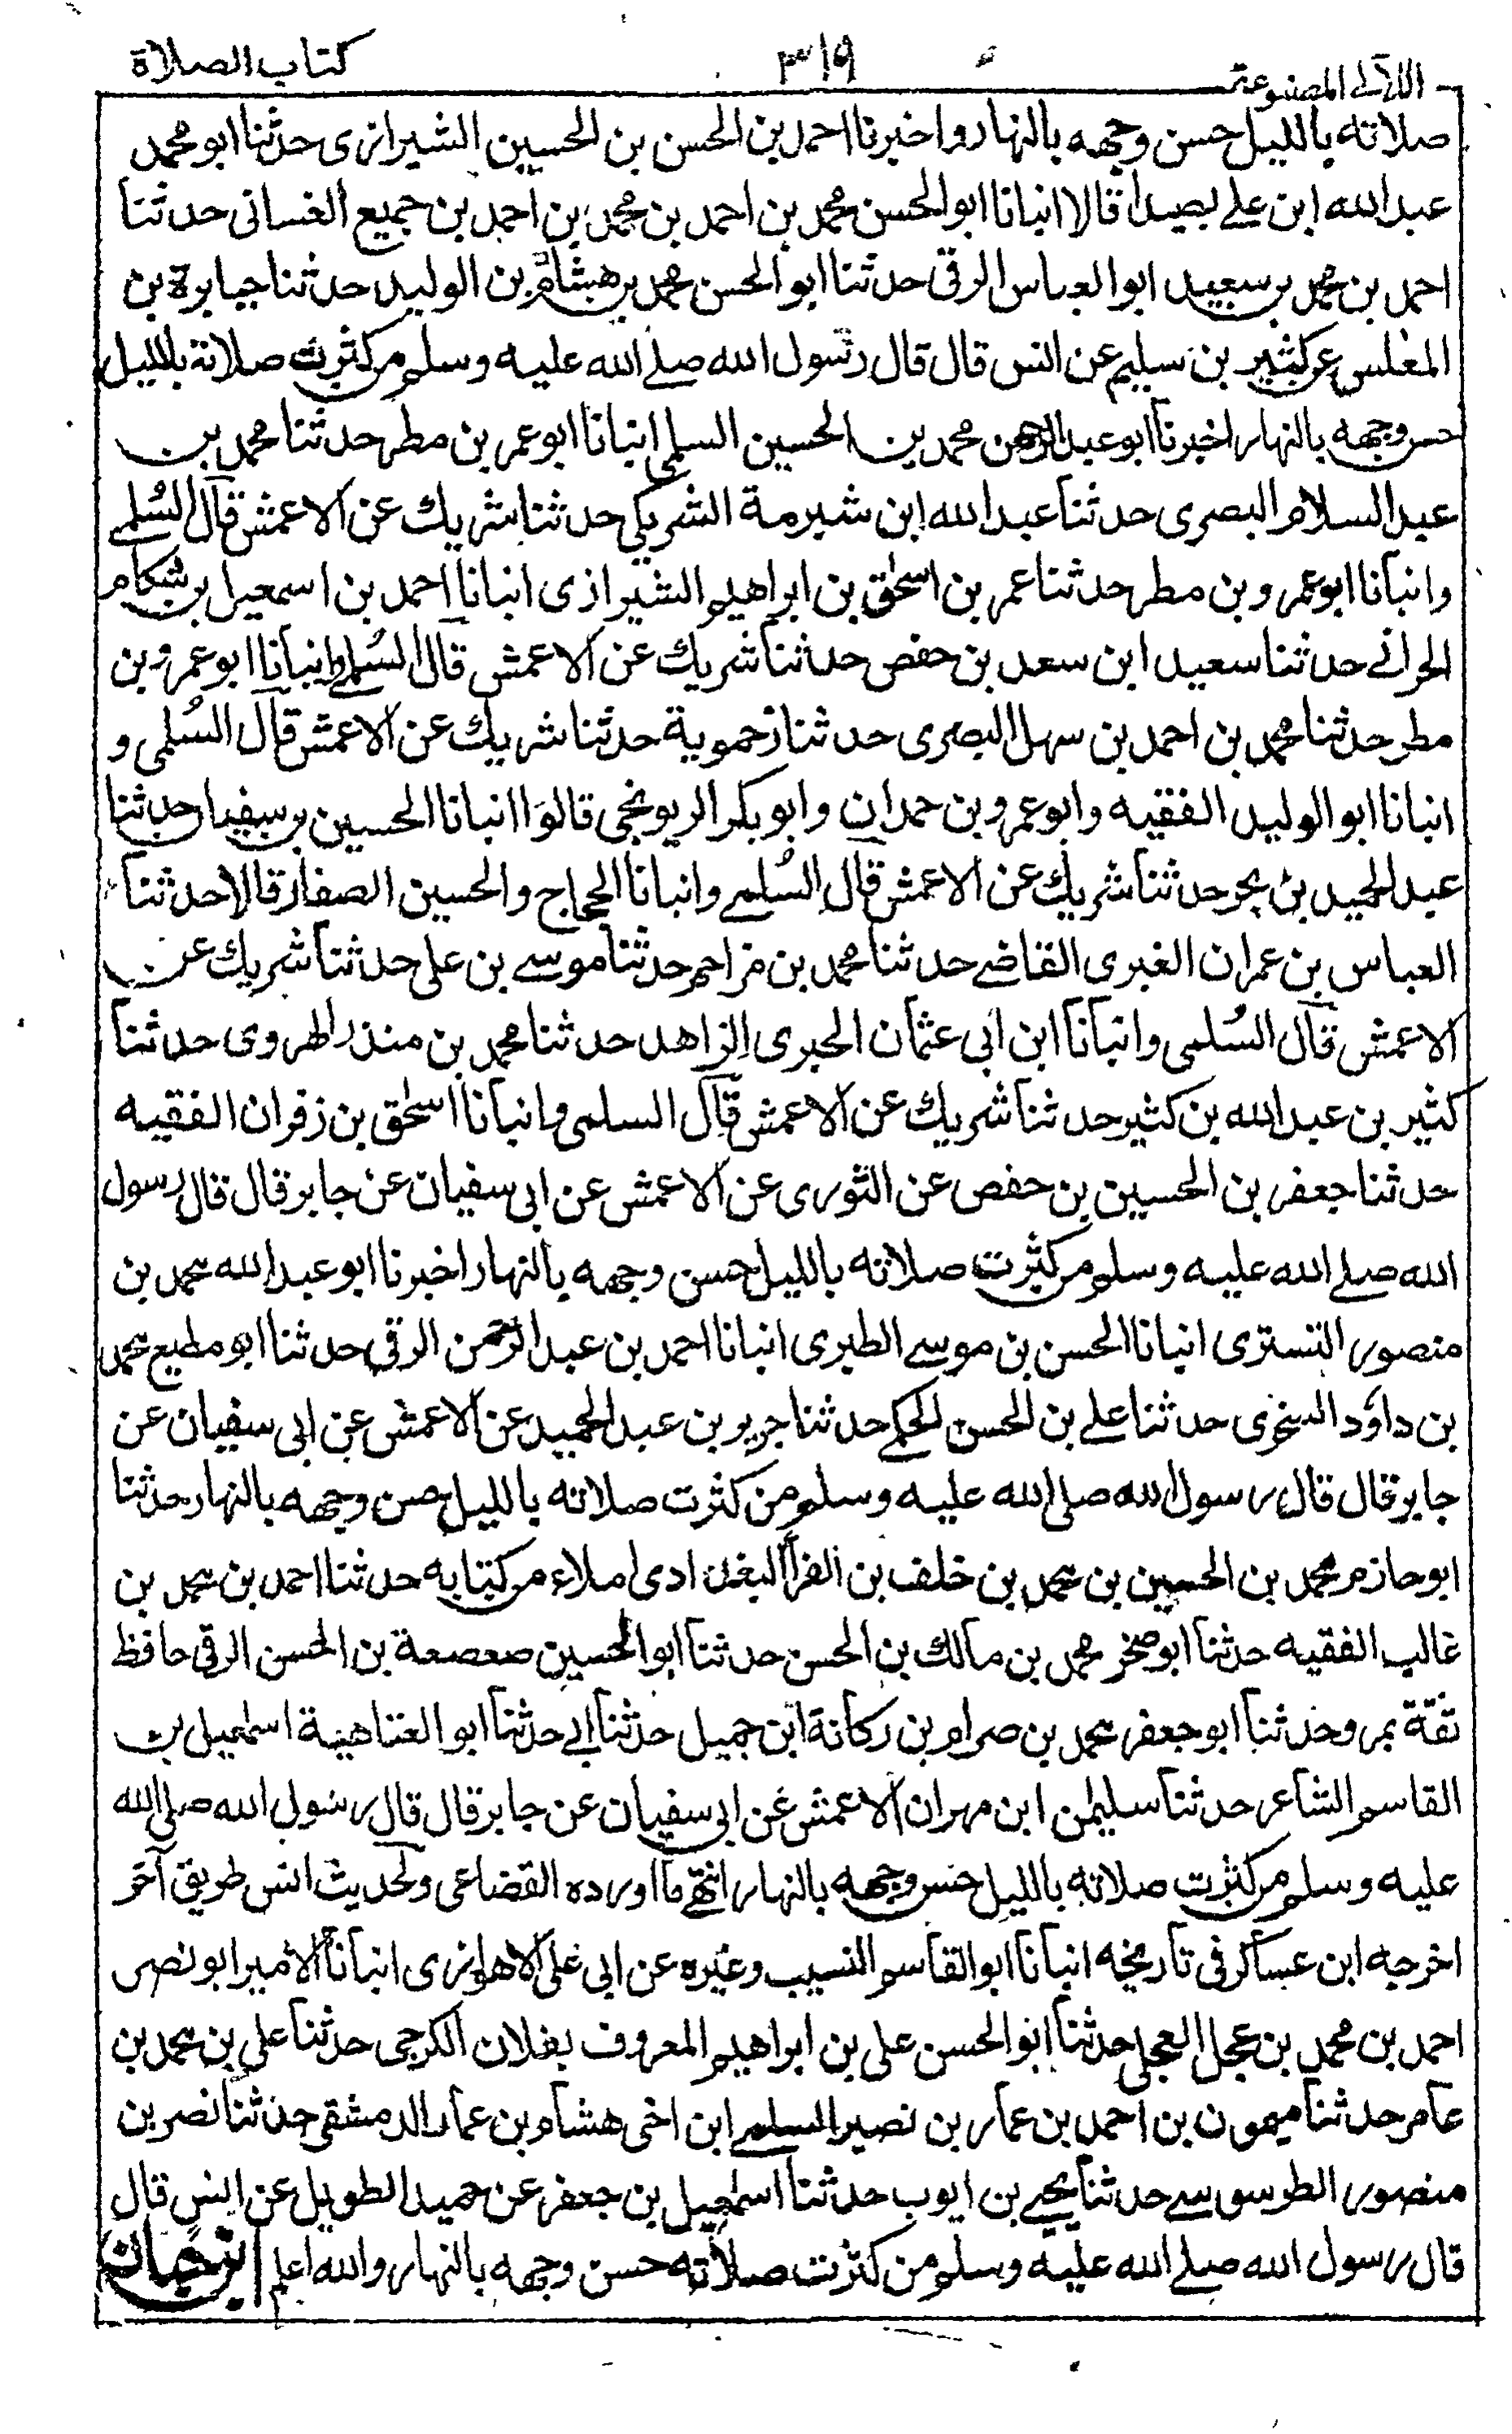 اللآلى المصنوعة ٣١٩ كتاب الصلاة
صلاته بالليل حسن وجهه بالنهار واخبرنا احمد بن الحسن بن الحسين الشيرازى حدثنا ابو محمد
عبد الله ابن على بصيدا قالا انبانا ابو الحسن محمد بن احمد بن محمد بن احمد بن جميع الغسانى حدثنا
احمد بن محمد بن سعيد ابو العباس الرقى حدثنا ابو الحسن محمد بن هشام بن الوليد حدثنا جبابرة بن
المغلس عن كثير بن سليم عن انس قال قال رسول الله صلى الله عليه وسلم من كثرت صلاته بالليل
حسن وجهه بالنهار اخبرنا ابو عبد الرحمن محمد بن الحسين السلمى انبانا ابو عمر بن مطر حدثنا محمد بن
عبد السلام البصرى حدثنا عبد الله ابن شبرمة الشريكى حدثنا شريك عن الاعمش قال السُلمى
وانبانا ابو عمرو بن مطر حدثنا عمر بن اسحٰق بن ابراهيم الشيرازى انبانا احمد بن اسمعيل بن شكام
الحرانى حدثنا سعيد ابن سعد بن حفص حدثنا شريك عن الاعمش قال السُلمى وانبانا ابو عمرو بن
مطر حدثنا محمد بن احمد بن سهل البصرى حدثنا زحموية حدثنا شريك عن الاعمش قال السُلمى و
انبانا ابو الوليد الفقيه وابو عمرو بن حمدان وابو بكر الريونجى قالوا انبانا الحسين بن سفيان حدثنا
عبد الحميد بن بحر حدثنا شريك عن الاعمش قال السُلمى وانبانا الحجاج والحسين الصفار قالا حدثنا
العباس بن عمران الغبرى القاضى حدثنا محمد بن مزاحم حدثنا موسى بن على حدثنا شريك عن
الاعمش قال السُلمى وانبانا ابن ابى عثمان الحيرى الزاهد حدثنا محمد بن منذر الهروى حدثنا
كثير بن عبد الله بن كثير حدثنا شريك عن الاعمش قال السلمى وانبانا اسحٰق بن زفران الفقيه
حدثنا جعفر بن الحسين بن حفص عن الثورى عن الاعمش عن ابى سفيان عن جابر قال قال رسول
الله صلى الله عليه وسلم من كثرت صلاته بالليل حسن وجهه بالنهار اخبرنا ابو عبد الله محمد بن
منصور التسترى انبانا الحسن بن موسى الطبرى انبانا احمد بن عبد الرحمن الرقى حدثنا ابو مطيع محمد
بن داوٗد السنجرى حدثنا على بن الحسن الحكمى حدثنا جرير بن عبد الحميد عن الاعمش عن ابى سفيان عن
جابر قال قال رسول الله صلى الله عليه وسلم من كثرت صلاته بالليل حسن وجهه بالنهار حدثنا
ابو حازم محمد بن الحسين بن محمد بن خلف بن الفراْ البغدادى املاء من كتابه حدثنا احمد بن محمد بن
غالب الفقيه حدثنا ابو صخر محمد بن مالك بن الحسن حدثنا ابو الحسين صعصعة بن الحسن الرقى حافظ
ثقة بمرو حدثنا ابو جعفر محمد بن صرام بن ركانة ابن جميل حدثنا ابى حدثنا ابو العتاهية اسمٰعيل بن
القاسم الشاعر حدثنا سليمٰن ابن مهران الاعمش عن ابى سفيان عن جابر قال قال رسول الله صلى الله
عليه وسلم من كثرت صلاته بالليل حسن وجهه بالنهار انتهى ما اورده القضاعى ولحديث انس طريق آخر
اخرجه ابن عساكر فى تاريخه انبانا ابو القاسم النسيب وغيره عن ابى على الاهوازى انبانا الامير ابو نصر
احمد بن محمد بن عجل العجلى حدثنا ابو الحسن على بن ابراهيم المعروف بفلان الكرجى حدثنا على بن محمد بن
عامر حدثنا ميمون بن احمد بن عمار بن نصير السلمى ابن اخى هشام بن عمار الدمشقى حدثنا نصر بن
منصور الطرسوسى حدثنا يحيى بن ايوب حدثنا اسمٰعيل بن جعفر عن حميد الطويل عن انس قال
قال رسول الله صلى الله عليه وسلم من كثرت صلاته حسن وجهه بالنهار والله اعلم